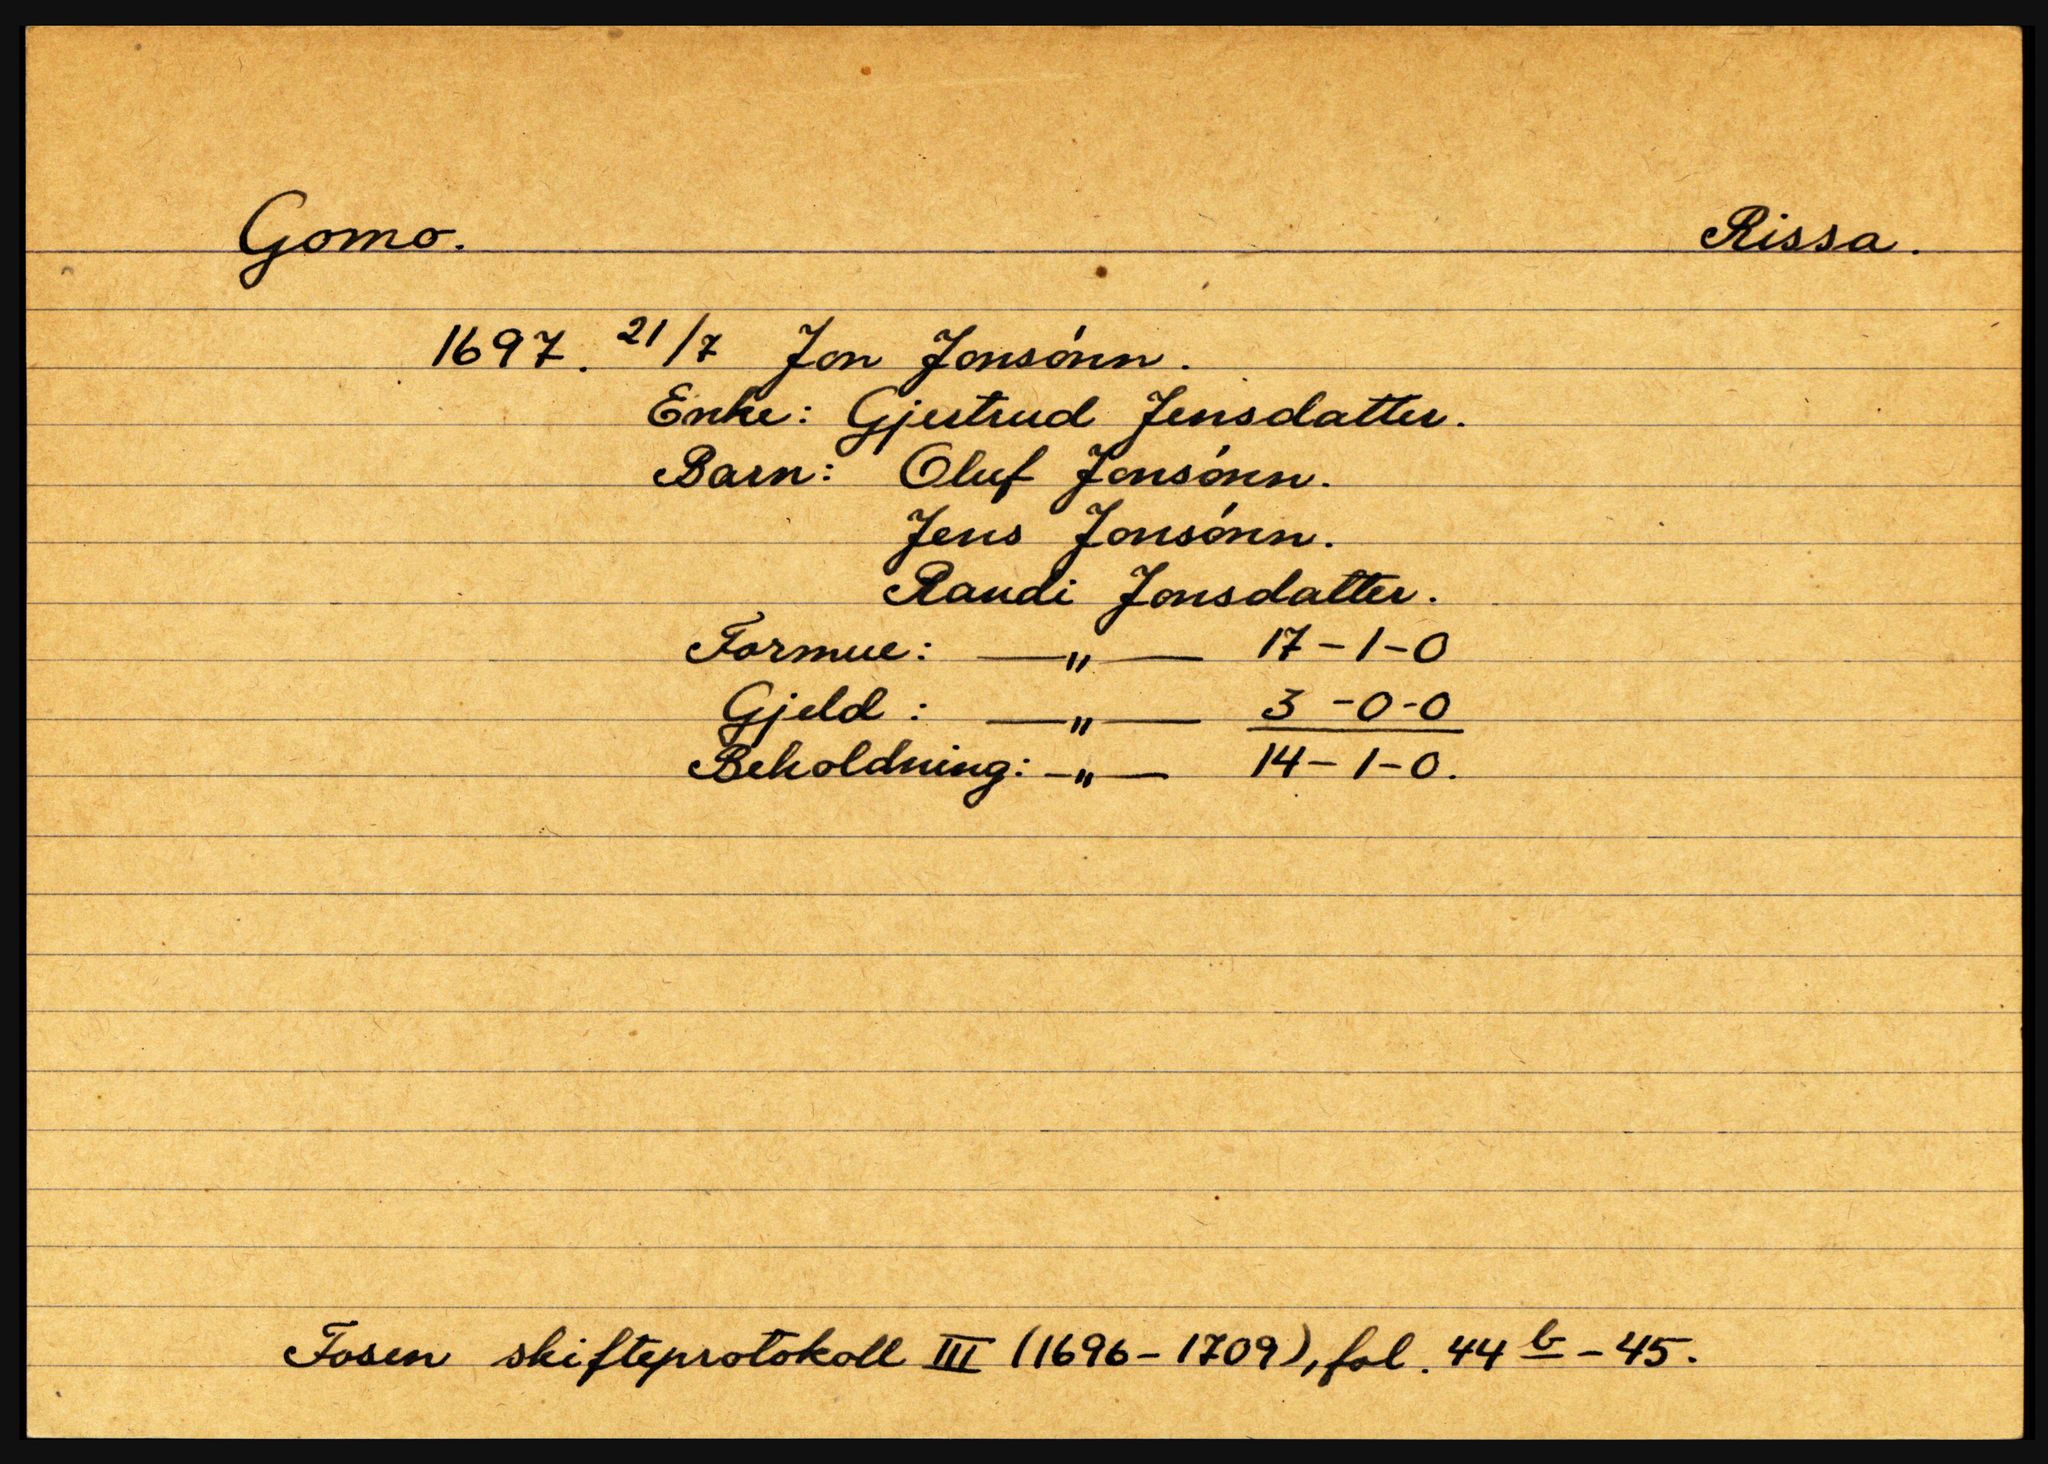 Gomo. Rissa.
1697. 21/7 Jon Jonsónn.
Enke: Gjertrud Jensdatter.
Barn: Oluf Jonsónn.
Jens Jonsónn.
Randi Jonsdatter.
Formue: —〃— 17-1-0
Gjeld: —〃— 3-0-0
Beholdning: —〃— 14-1-0.
Fosen skifteprotokoll III (1696-1709), fol. 44 b - 45.